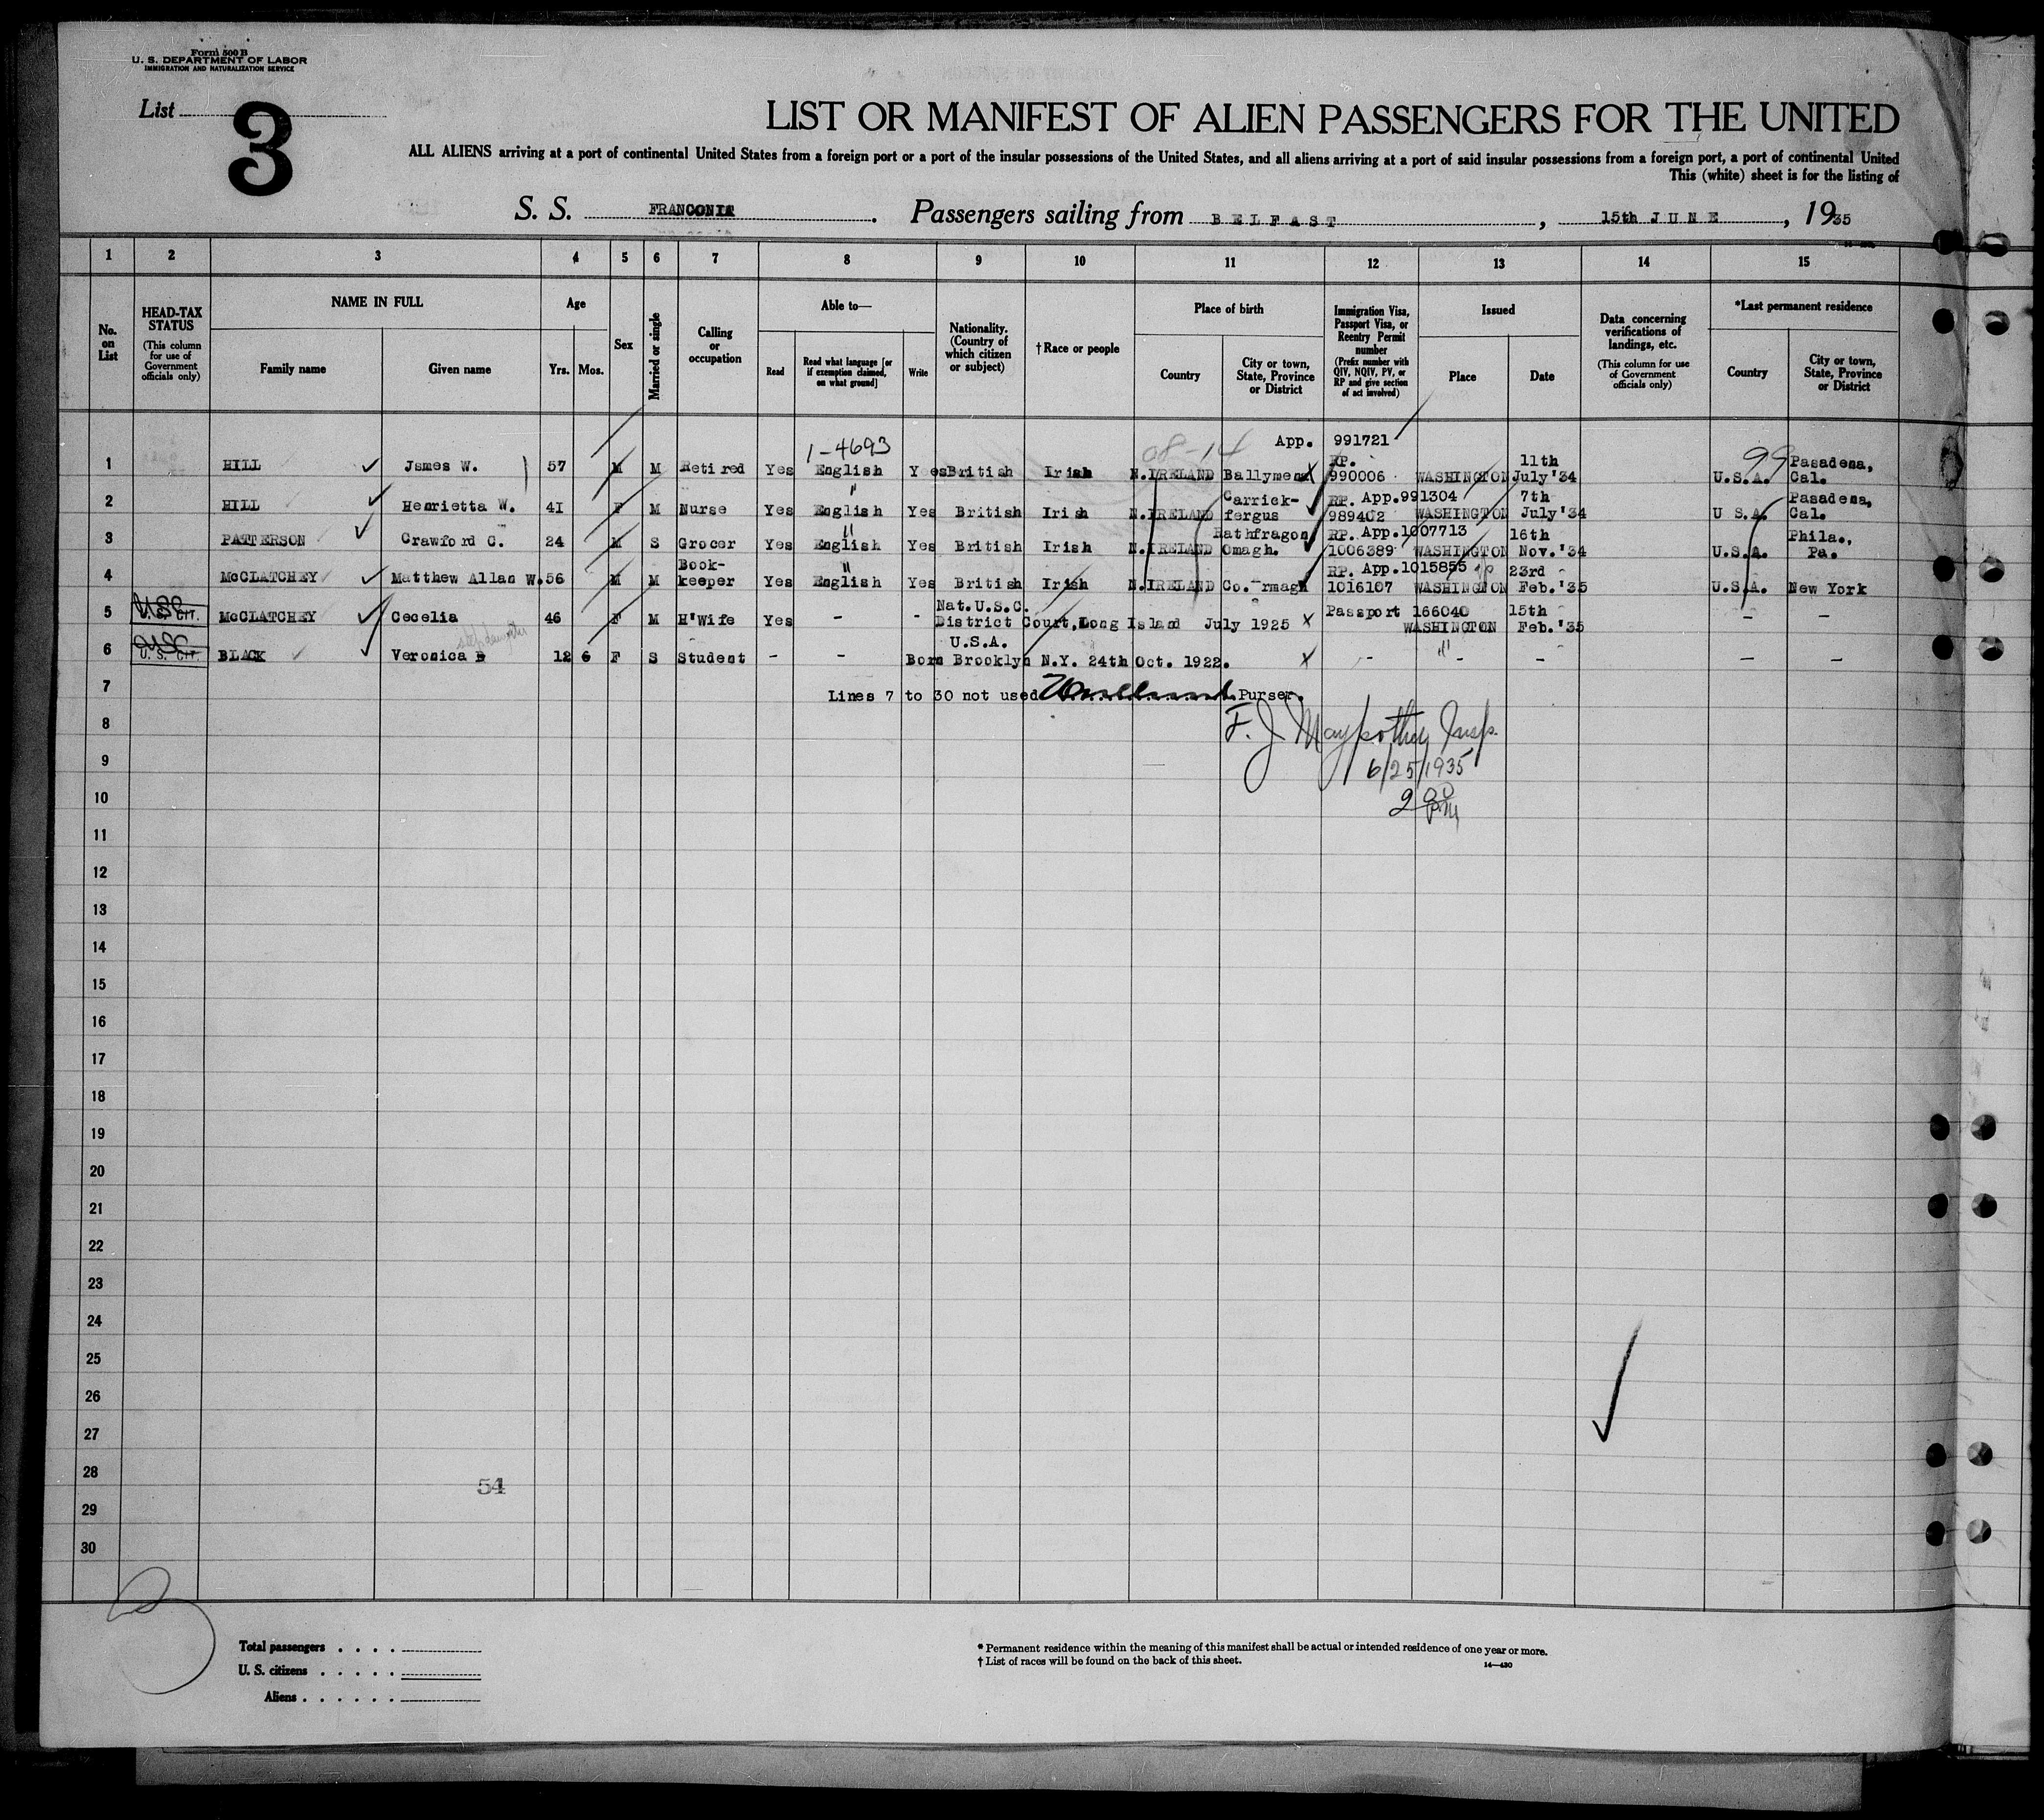 Form 500 B
U. S. DEPARTMENT OF LABOR
IMMIGRATION AND NATURALIZATION SERVICE
List 3
LIST OR MANIFEST OF ALIEN PASSENGERS FOR THE UNITED
ALL ALIENS arriving at a port of continental United States from a foreign port or a port of the insular possessions of the United States, and all aliens arriving at a port of said insular possessions from a foreign port, a port of continental United
This (white) sheet is for the listing of
S. S. FRANCONIA. Passengers sailing from BELFAST, 15th JUNE, 1935
1 2 3 4 5 6 7 8 9 10 11 12 13 14 15
No. on List
HEAD-TAX STATUS
(This column for use of Government officials only)
NAME IN FULL
Family name Given name
Age
Yrs. Mos.
Sex
Married or single
Calling or occupation
Able to—
Read
Read what language [or if exemption claimed, on what ground]
Write
Nationality. (Country of which citizen or subject)
† Race or people
Place of birth
Country
City or town, State, Province or District
Immigration Visa, Passport Visa, or Reentry Permit number
(Prefix number with QIV, NQIV, PV, or RP and give section of act involved)
Issued
Place Date
Data concerning verifications of landings, etc.
(This column for use of Government officials only)
*Last permanent residence
Country
City or town, State, Province or District
1-4693 08-14 App. 991721
RP. 11th 99 Pasadena,
1 HILL James W. 57 M M Retired Yes English Yes British Irish N.IRELAND Ballymena 990006 WASHINGTON July'34 U.S.A. Cal.
" Carrick- RP. App.991304 7th Pasadena,
2 HILL Henrietta W. 41 F M Nurse Yes English Yes British Irish N.IRELAND fergus 989402 WASHINGTON July'34 U S.A. Cal.
" Rathfragon RP. App.1007713 16th Phila.,
3 PATTERSON Crawford C. 24 M S Grocer Yes English Yes British Irish N.IRELAND Omagh. 1006389 WASHINGTON Nov.'34 U.S.A. Pa.
Book- " RP. App.1015855 23rd
4 McCLATCHEY Matthew Allan W. 56 M M keeper Yes English Yes British Irish N.IRELAND Co. rmagh 1016107 WASHINGTON Feb.'35 U.S.A. New York
USC Nat.U.S.C. Passport 166040 15th
5 U.S. CIT. McCLATCHEY Cecelia 46 F M H'Wife Yes - - District Court,Long Island July 1925 X WASHINGTON Feb.'35 - -
USC stepdaughter U.S.A. "
6 U. S. CIT. BLACK Veronica B 12 6 F S Student - - Born Brooklyn N.Y. 24th Oct. 1922. X - - - - -
7 Lines 7 to 30 not used Purser.
8 F. J Insp.
9 6/25/1935
10 2 00 PM
11
12
13
14
15
16
17
18
19
20
21
22
23
24
25
26
27
28
54
29
30
Total passengers . . . .
U. S. citizens . . . . .
Aliens . . . . . .
* Permanent residence within the meaning of this manifest shall be actual or intended residence of one year or more.
† List of races will be found on the back of this sheet.
14—430